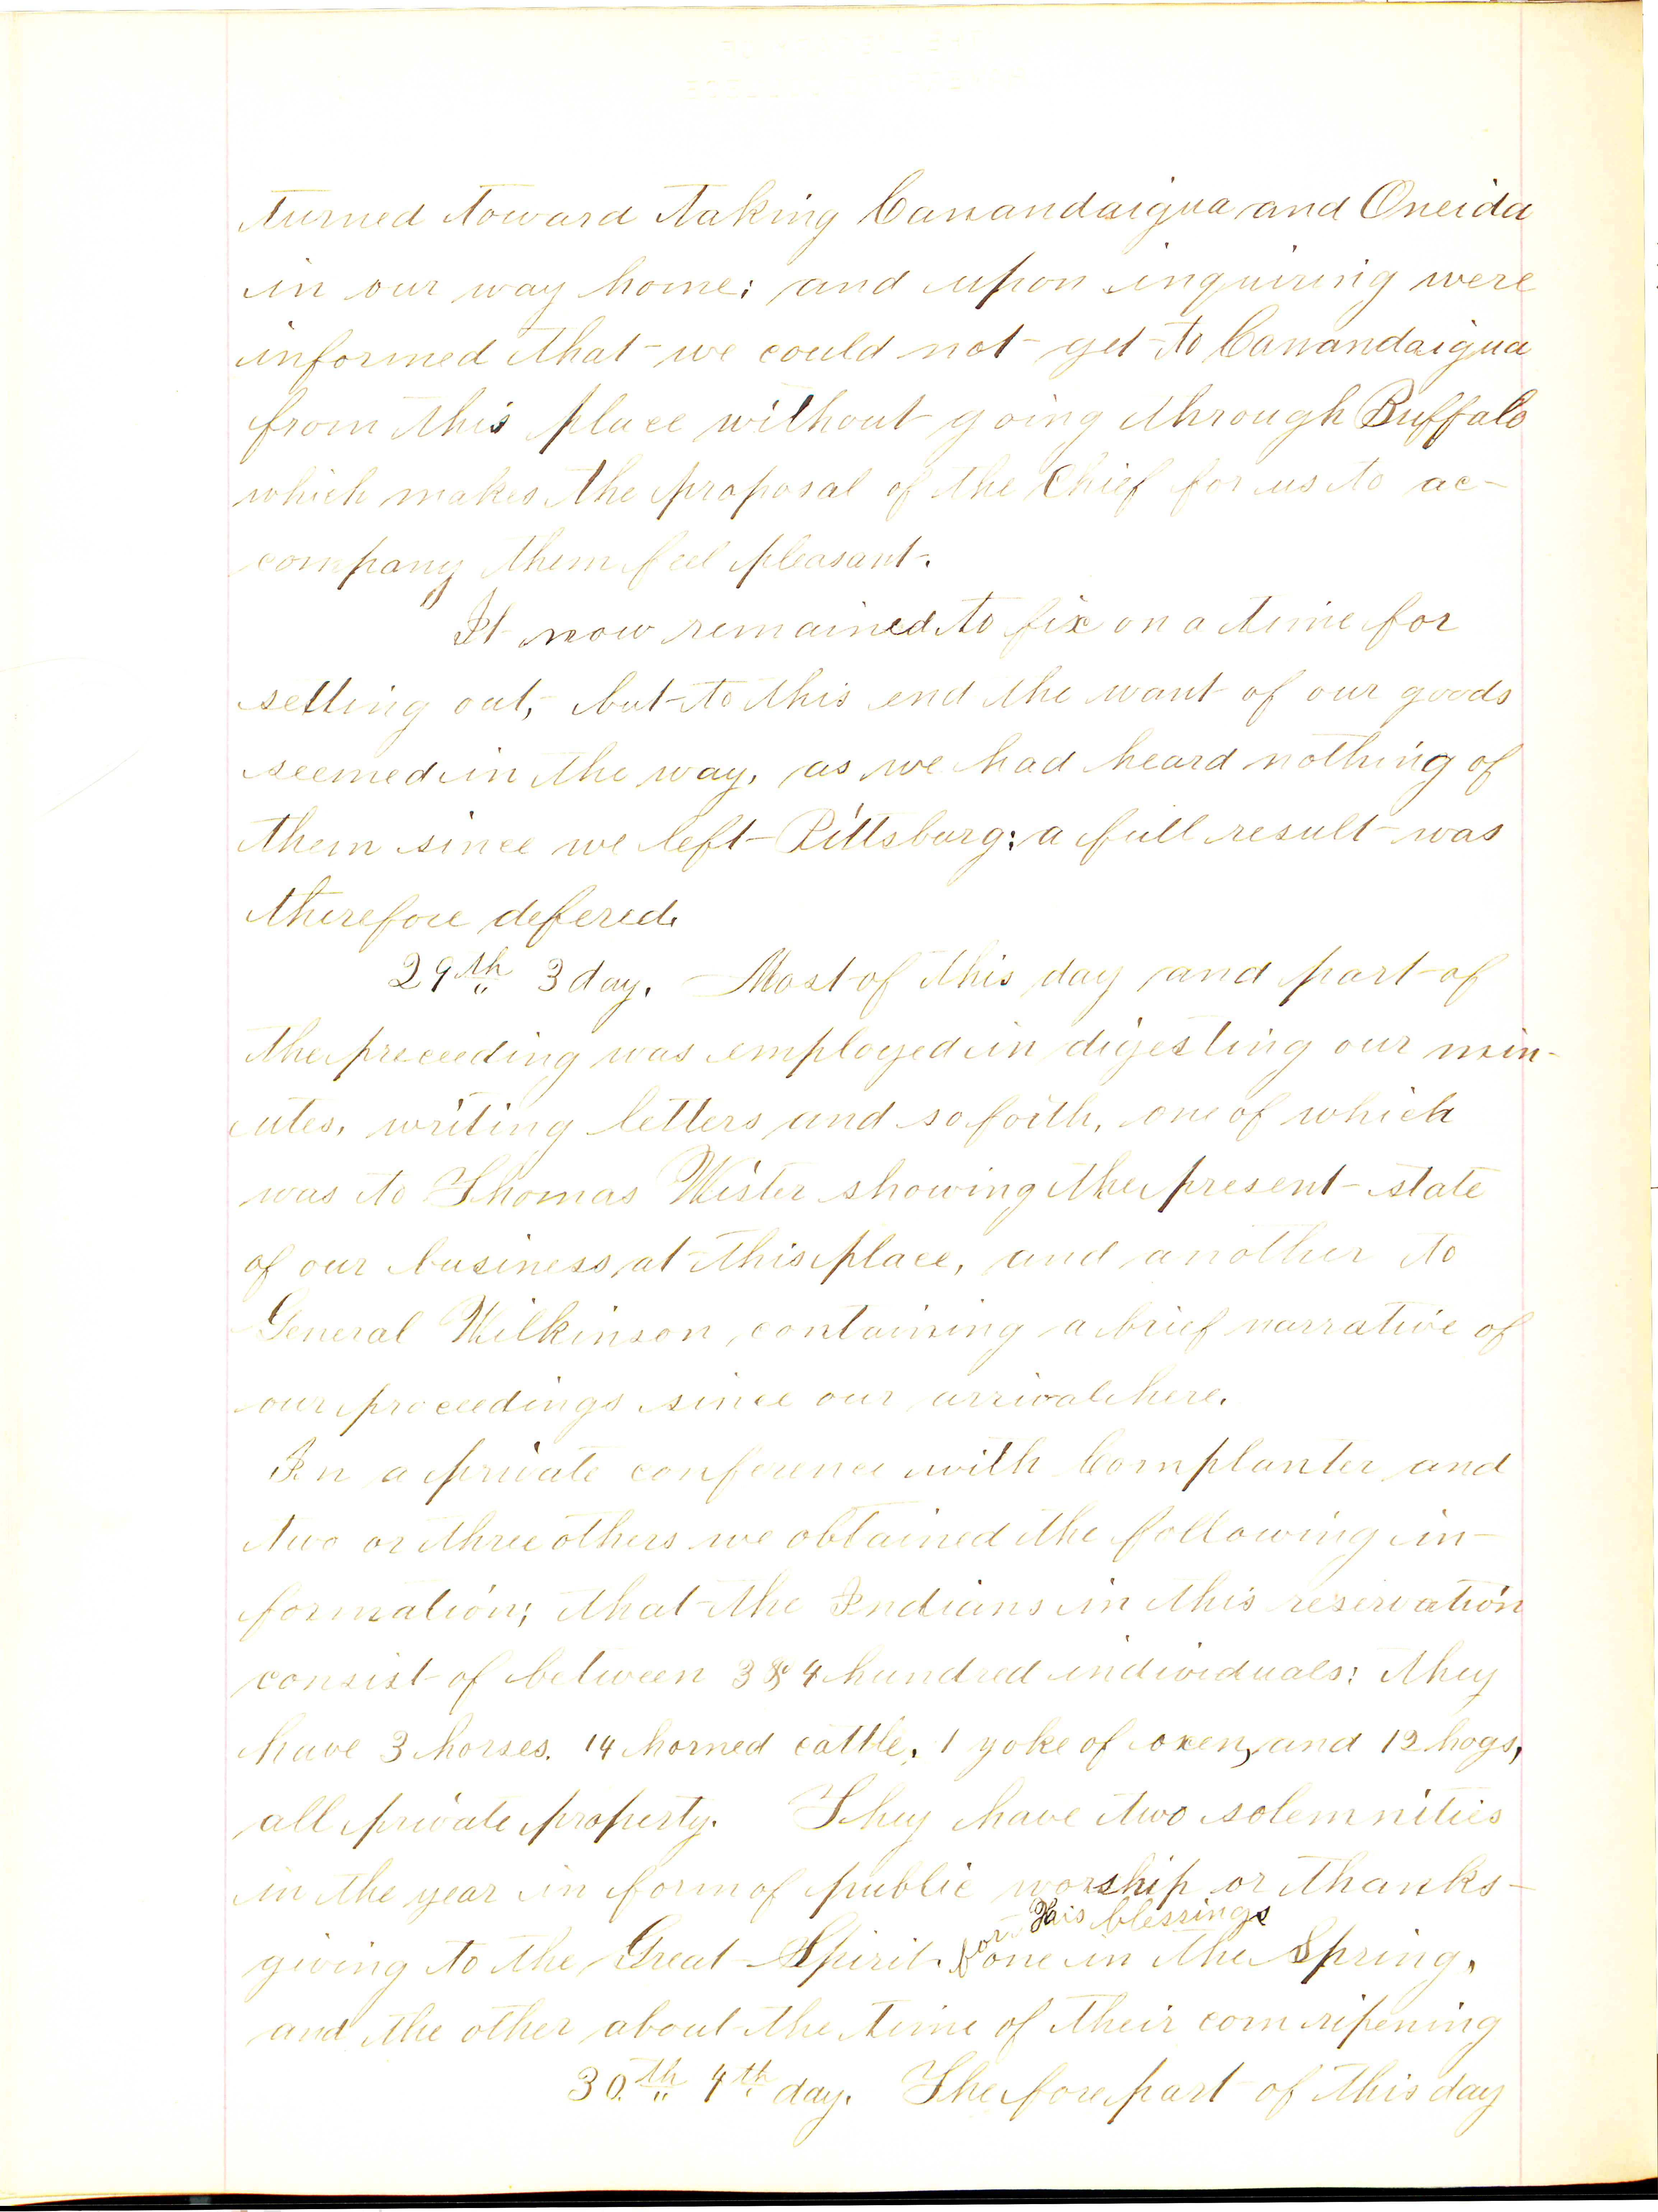 turned toward taking Canandaigua and Oneida
in our way home; and upon inquiring were
informed that we could not get to Canandaigua
from this place without going through Buffalo
which makes the proposal of the Chief for us to ac-
company them feel pleasant.
It now remained to fix on a time for
setting out, but to this end the want of our goods
seemed in the way, as we had heard nothing of
them since we left Pittsburg; a full result was
therefore defered.
29th 3 day. Most of this day and part of
the preceeding was employed in digesting our min-
utes, writing letters and so forth, one of which
was to Thomas Wister showing the present state
of our business at this place, and another to
General Wilkinson containing a brief narrative of
our proceedings since our arrival here.
In a private conference with Cornplanter and
two or three others we obtained the following in-
formation; that the Indians in this reservation
consist of between 3 & 4 hundred individuals: they
have 3 horses. 14 horned cattle, 1 yoke of oxen, and 12 hogs,
all private property. They have two solemnities
in the year in form of public worship or thanks-
for His blessings
giving to the Great Spirit. one in the Spring,
and the other about the time of their corn ripening
30.th 4th day. The fore part of this day